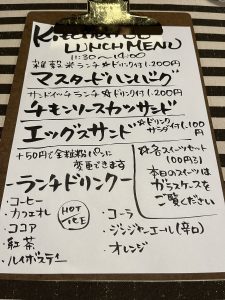 LUNCH MENU
11:30〜14:00
雑穀米ランチ ☆ドリンク付 1,200円
マスタードハンバーグ
サンドイッチランチ ☆ドリンク付 1,200円
チキンソースカツサンド
エッグスサンド ☆ドリンク
サラダ付 1,100円
+50円で全粒粉パンに
変更できます
スイーツセット
100円引
本日のスイーツは
ガラスケースを
ご覧ください
ランチドリンク
HOT
ICE
・コーヒー
・カフェオレ
・ココア
・紅茶
・ルイボスティー
・コーラ
・ジンジャーエール(辛口)
・オレンジ